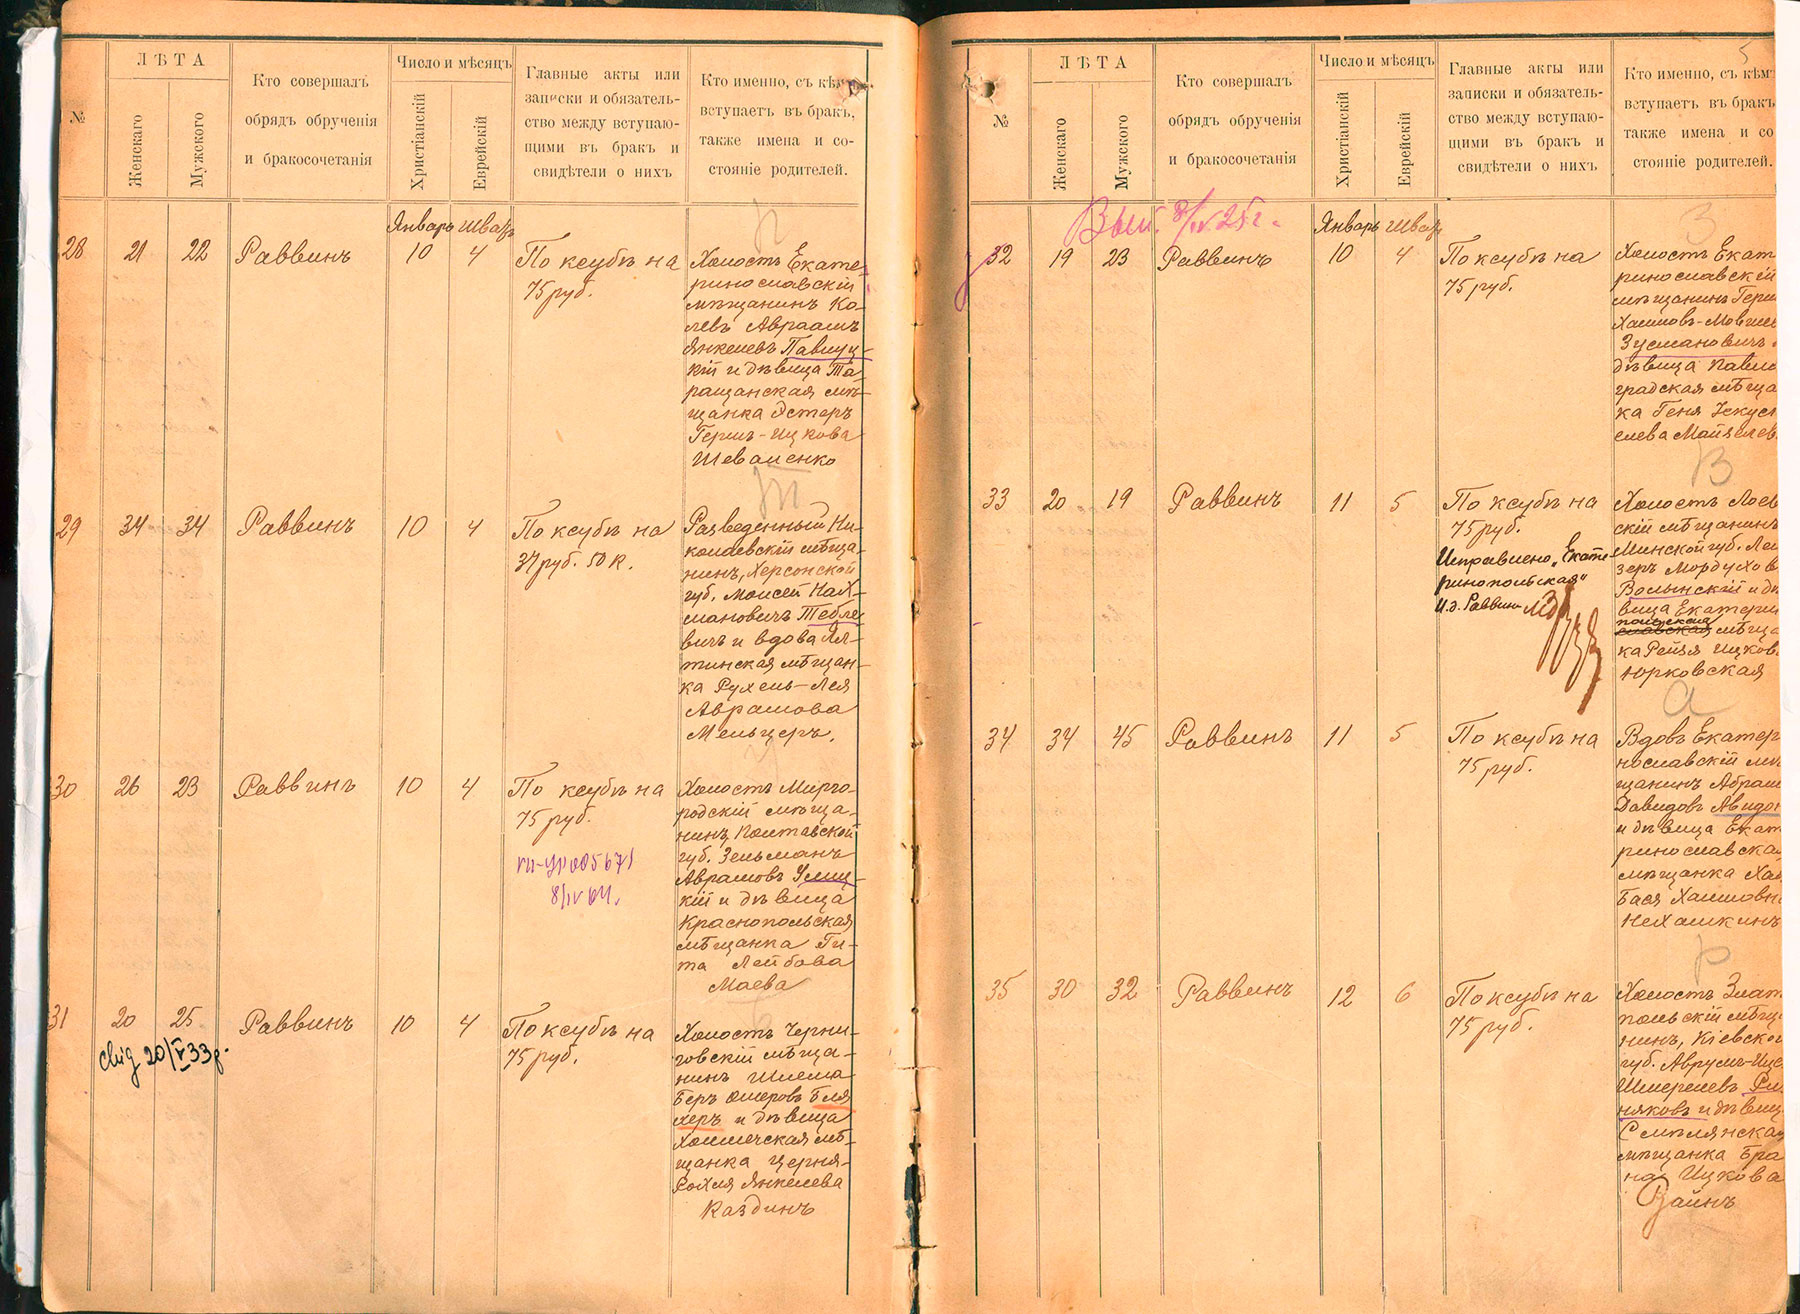 №
ЛѢТА
Женскаго
Мужского
Кто совершалъ
обрядъ обрученія
и бракосочетанія
Число и мѣсяцъ
Христіанскій
Еврейскій
Главные акты или
записки и обязатель-
ство между вступаю-
щими въ бракъ и
свидѣтели о нихъ
Кто именно, съ кѣмъ
вступаетъ въ бракъ,
также имена и со-
стояніе родителей.
Январь Шватъ
28
21
22
Раввинъ
10
4
По ксубѣ на
75 руб.
Холостъ Екате-
ринославскій
мѣщанинъ Ко-
левъ Авраамъ
Янкелевъ Павлуц-
кій и дѣвица Та-
ращанская мѣ-
щанка Эстеръ
Гершъ-Ицкова
Шеваленко
29
34
34
Раввинъ
10
4
По ксубѣ на
37 руб. 50 к.
Разведенный Ни-
колаевскій мѣща-
нинъ, Херсонской
губ. Моисей Нах-
мановичъ Тебле-
вичъ и вдова Ял-
тинская мѣщан-
ка Рухель-Лея
Аврамова
Мельцеръ.
30
26
23
Раввинъ
10
4
По ксубѣ на
75 руб.
8/IV
Холостъ Мирго-
родскій мѣща-
нинъ, Полтавской
губ. Зельманъ
Аврамовъ Улиц-
кій и дѣвица
Краснопольская
мѣщанка Ги-
та Лейбова
Маева
31
20
25
Раввинъ
10
4
По ксубѣ на
75 руб.
20/V 33 р.
Холостъ Черни-
говскій мѣща-
нинъ Шлема
Беръ Ошеровъ Бля
херъ и дѣвица
Хотмечская мѣ-
щанка Церня-
Рохля Янкелева
Каздинъ
5
№
ЛѢТА
Женскаго
Мужского
Кто совершалъ
обрядъ обрученія
и бракосочетанія
Число и мѣсяцъ
Христіанскій
Еврейскій
Главные акты или
записки и обязатель-
ство между вступаю-
щими въ бракъ и
свидѣтели о нихъ
Кто именно, съ кѣмъ
вступаетъ въ бракъ
также имена и со
стояніе родителей.
Вып. 8/IV 25 г.
Январь Шватъ
З
32
19
23
Раввинъ
10
4
По ксубѣ на
75 руб.
Холостъ Екат
ринославскій
мѣщанинъ Герш
Хаимовъ-Мовше
Зусмановичъ
дѣвица Павло
градская мѣща
ка Геня Іскус
елева Майзелев
В
33
20
19
Раввинъ
11
5
По ксубѣ на
75 руб.
Исправлено „Екате-
ринопольская"
И.д. Раввин
Холостъ Лоев
скій мѣщанинъ
Минской губ. Леи
зеръ Мордухов
Волынскій и дѣ
вица Екатерин
польская
славская мѣща
ка Рейзя Ицков
Юрковская
а
34
34
45
Раввинъ
11
5
По ксубѣ на
75 руб.
Вдовъ Екатер
нославскій мѣ
щанинъ Абрам
Давидовъ Авидон
и дѣвица Екат
ринославска
мѣщанка Ха
Бася Хаимовн
Нехамкинъ
р
35
30
32
Раввинъ
12
6
По ксубѣ на
75 руб.
Холостъ Злат
польскій мѣщ
нинъ, Кіевской
губ. Аврумъ-Ице
Шмерелевъ
няковъ и дѣвиц
Смѣлянская
мѣщанка Бра
на Ицкова
Зайнъ